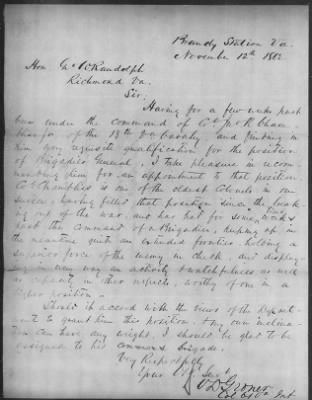 Brandy Station Va.
November 12th 1862
Hon Geo W Randolph
Richmond Va.
Sir:
Having for a few weeks past
been under the command of Col Jno R. Cham
bliss Jr of the 13th Va Cavalry and finding in
him every requisite qualification for the position
of Brigadier General, I take pleasure in recom
mending him for an appointment to that position.
Col Chambliss is one of the oldest Colonels in our
service, having filled that position since the break
ing out of the war, and has had for some weeks
past the command of a Brigade, keeping up in
the meantime quite an extended frontier, holding a
superior force of the enemy in check, and display
ing in every way an activity & watchfulness as well
as capacity in other respects, worthy of one in a
higher position.
Should it accord with the views of the Depart
ment to grant him this position, & my own inclina
tion can have any weight, I should be glad to be
assigned to his command brigade.
Very Respectfully
Your Obt Servt
V D Groner
Col 61 Va Inf.